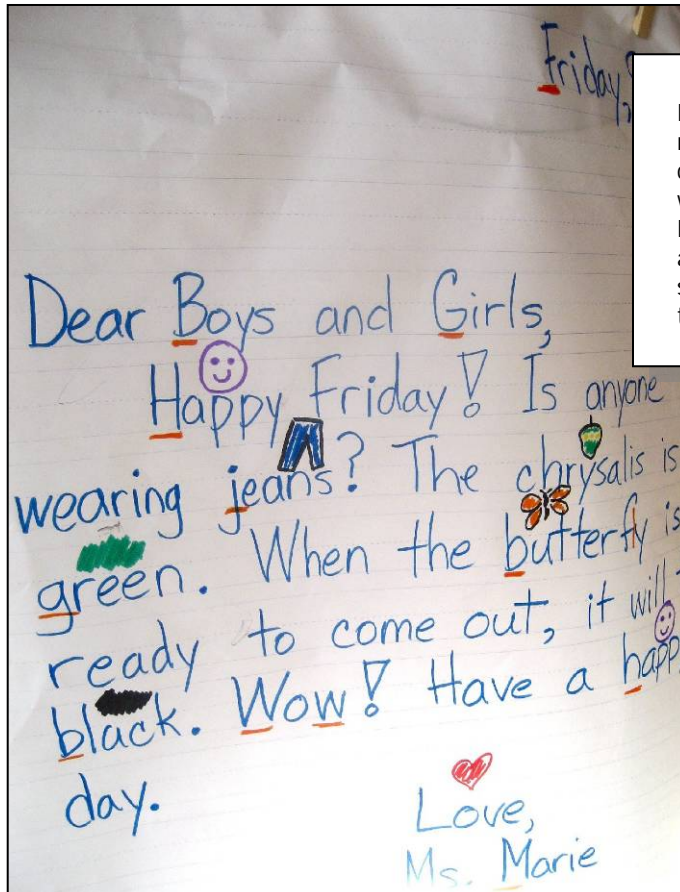 Friday,
Dear Boys and Girls,
Happy Friday! Is anyone
wearing jeans? The chrysalis is
green. When the butterfly is
ready to come out, it will
black. Wow! Have a
day.
Love,
Ms. Marie